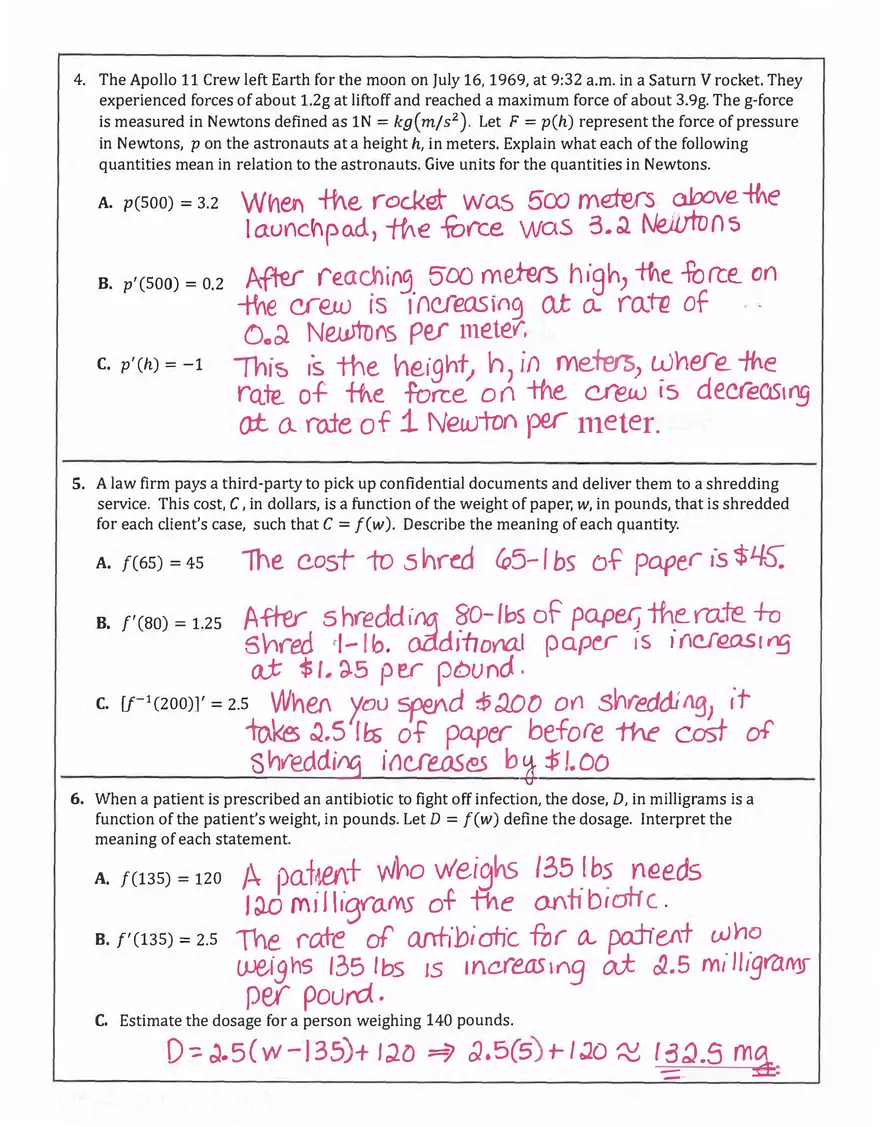 4. The Apollo 11 Crew left Earth for the moon on July 16, 1969, at 9:32 a.m. in a Saturn V rocket. They
experienced forces of about 1.2g at liftoff and reached a maximum force of about 3.9g. The g-force
is measured in Newtons defined as 1N = kg(m/s²). Let F = p(h) represent the force of pressure
in Newtons, p on the astronauts at a height h, in meters. Explain what each of the following
quantities mean in relation to the astronauts. Give units for the quantities in Newtons.
A. p(500) = 3.2 When the rocket was 500 meters above the
launchpad, the force was 3.2 Newtons
B. p′(500) = 0.2 After reaching 500 meters high, the force on
the crew is increasing at a rate of
0.2 Newtons per meter.
C. p′(h) = −1 This is the height, h, in meters, where the
rate of the force on the crew is decreasing
at a rate of 1 Newton per meter.
5. A law firm pays a third-party to pick up confidential documents and deliver them to a shredding
service. This cost, C, in dollars, is a function of the weight of paper, w, in pounds, that is shredded
for each client's case, such that C = f(w). Describe the meaning of each quantity.
A. f(65) = 45 The cost to shred 65-lbs of paper is $45.
B. f′(80) = 1.25 After shredding 80-lbs of paper, the rate to
shred 1-lb. additional paper is increasing
at $1.25 per pound.
C. [f⁻¹(200)]′ = 2.5 When you spend $200 on shredding, it
takes 2.5 lbs of paper before the cost of
shredding increases by $1.00
6. When a patient is prescribed an antibiotic to fight off infection, the dose, D, in milligrams is a
function of the patient's weight, in pounds. Let D = f(w) define the dosage. Interpret the
meaning of each statement.
A. f(135) = 120 A patient who weighs 135 lbs needs
120 milligrams of the antibiotic.
B. f′(135) = 2.5 The rate of antibiotic for a patient who
weighs 135 lbs is increasing at 2.5 milligrams
per pound.
C. Estimate the dosage for a person weighing 140 pounds.
D = 2.5(w−135)+120 ⇒ 2.5(5)+120 ≈ 132.5 mg